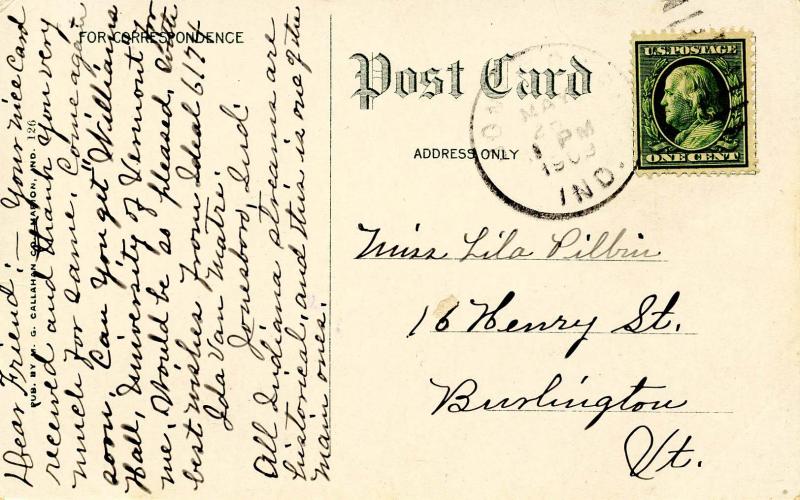 FOR CORRESPONDENCE
Dear Friend:— Your nice Card
received and thank you very
much for same. Come again
soon. Can you get "Williams
Hall, University of Vermont" for
me. Would be so pleased. With
best wishes from Ideal 6174
Ida Van Matre.
Jonesboro, Ind.
All Indiana streams are
historical, and this is one of the
main ones.
PUB. BY M. G. CALLAHAN CO. MARION, IND. 126
Post Card
ADDRESS ONLY
U.S. POSTAGE
ONE CENT
MAY
PM
1909
IND.
Miss Lila Pilbin
16 Henry St.
Burlington
Vt.